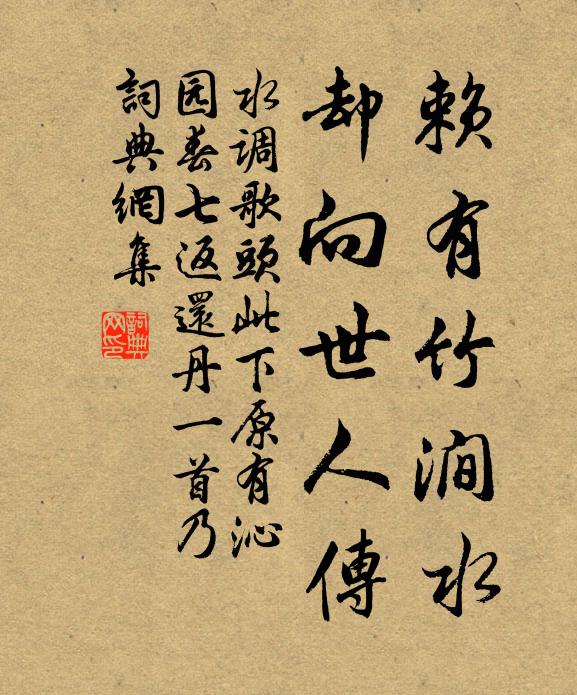 赖有竹澗水
却向世人傳
水调歌頭此下原有沁
园春七返還丹一首乃
詞典網集
詞典
网印